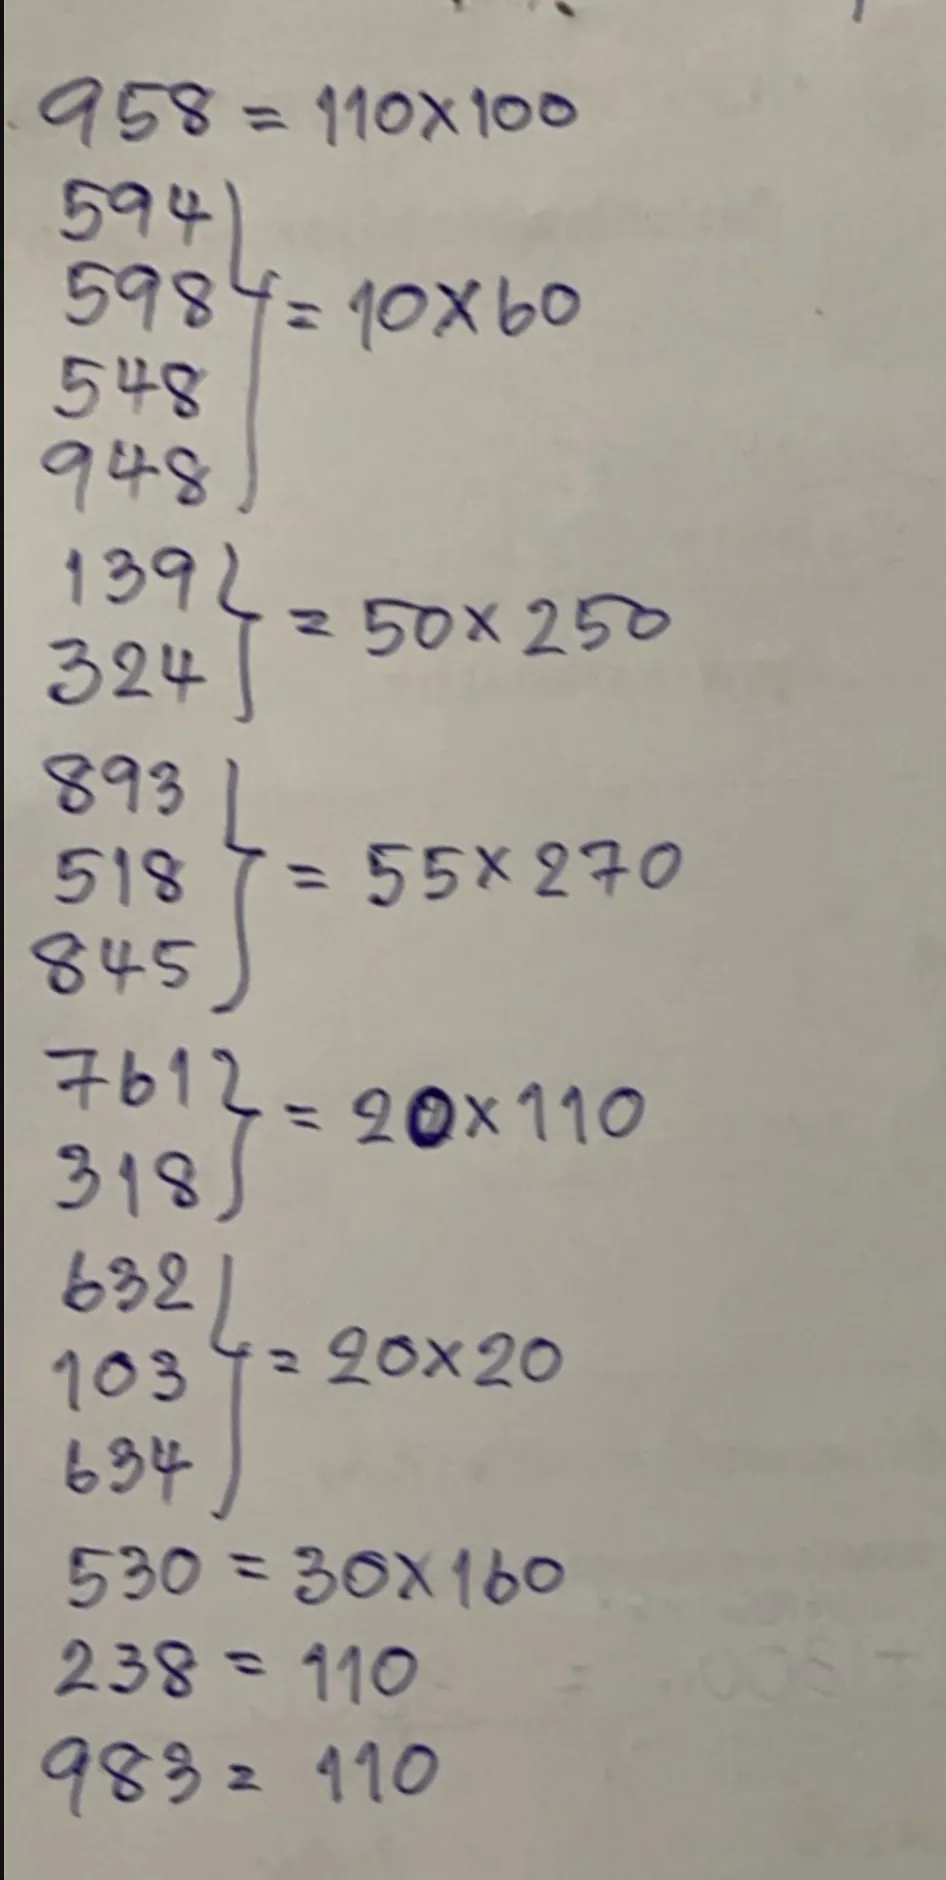 958 = 110x100
594
598 = 10x60
548
948
139 = 50x250
324
893
518 = 55x270
845
761 = 20x110
318
632
103 = 20x20
634
530 = 30x160
238 = 110
983 = 110